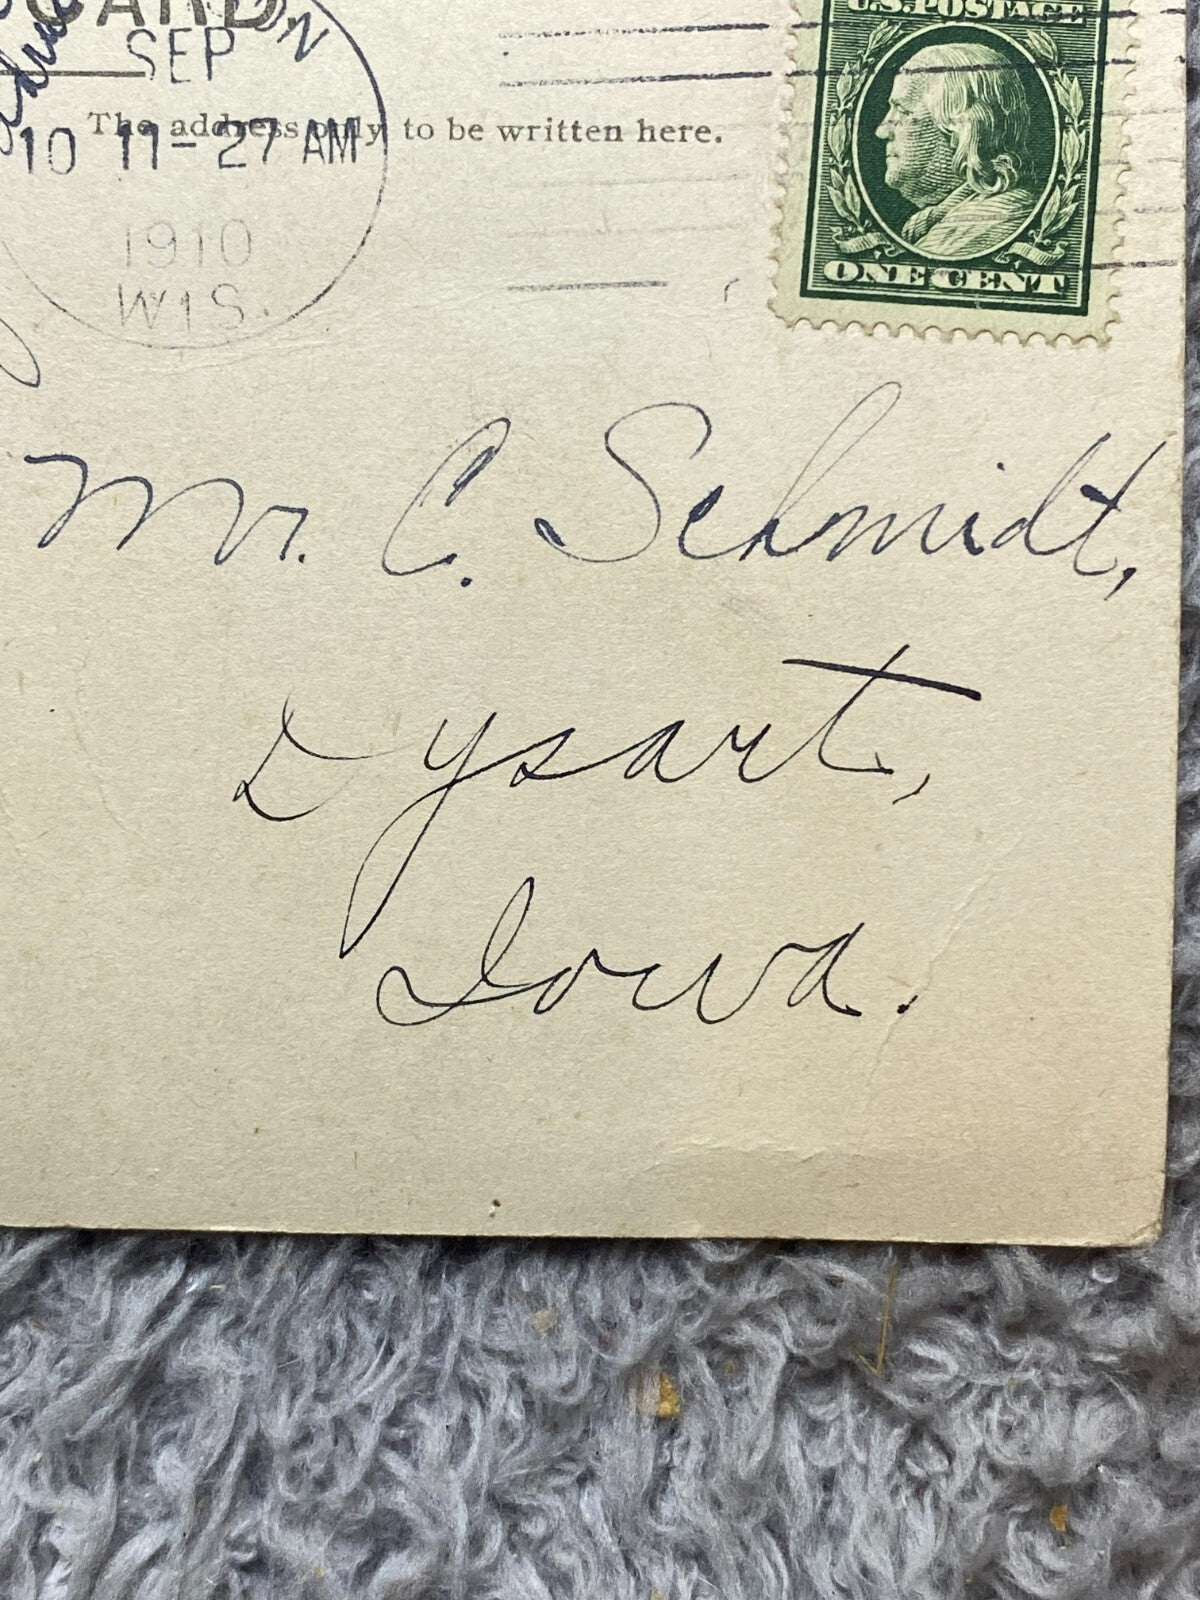 CARD.
SEP
The address only to be written here.
10 11-27 AM
1910
WIS.
U.S. POSTAGE
ONE CENT
Mr. C. Schmidt,
Dysart,
Iowa.